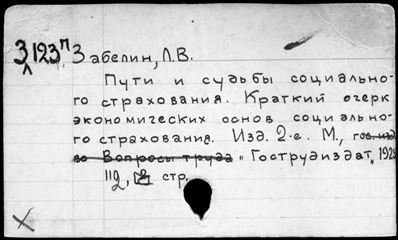 З 123 п Забелин, Л.В.
Пути и судьбы социально-
го страхования. Краткий очерк
экономических основ социально-
го страхования. Изд. 2-е. М., гос. изд-
во Вопросы труда "Гострудиздат", 1925
112, стр.